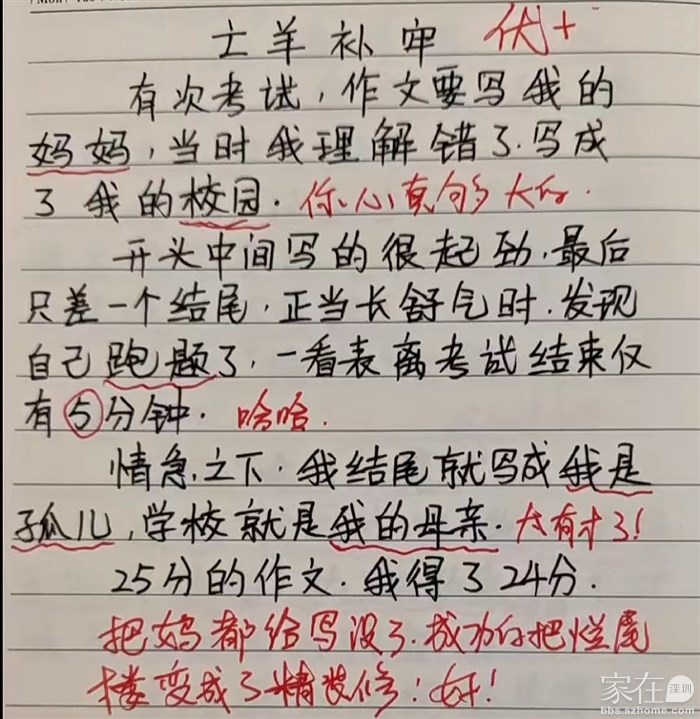 亡羊补牢 优+
有次考试，作文要写我的
妈妈，当时我理解错了.写成
了我的校园. 你心真够大的.
开头中间写的很起劲.最后
只差一个结尾.正当长舒气时.发现
自己跑题了.一看表离考试结束仅
有5分钟. 哈哈.
情急之下.我结尾就写成我是
孤儿,学校就是我的母亲. 太有才了!
25分的作文.我得了24分.
把妈都给写没了.成功的把烂尾
楼变成了精装修！好！
家在深圳
bbs.szhome.com